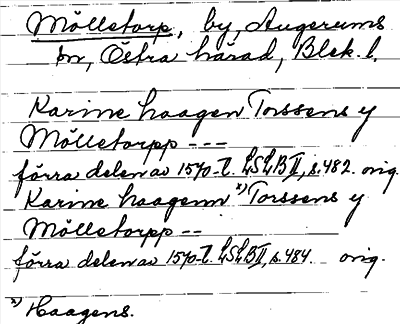 Mölletorp, by, Augerums
sn, Östra härad, Blek. l.
Karine haagen Torssens y
Mölletorpp ---
förra delen av 1570-t. LSLBII, s. 482. orig.
Karine haagenn x) Torssens y
Mölletorpp --
förra delen av 1570-t. LSLBII, s. 484. orig.
x) Haagens.